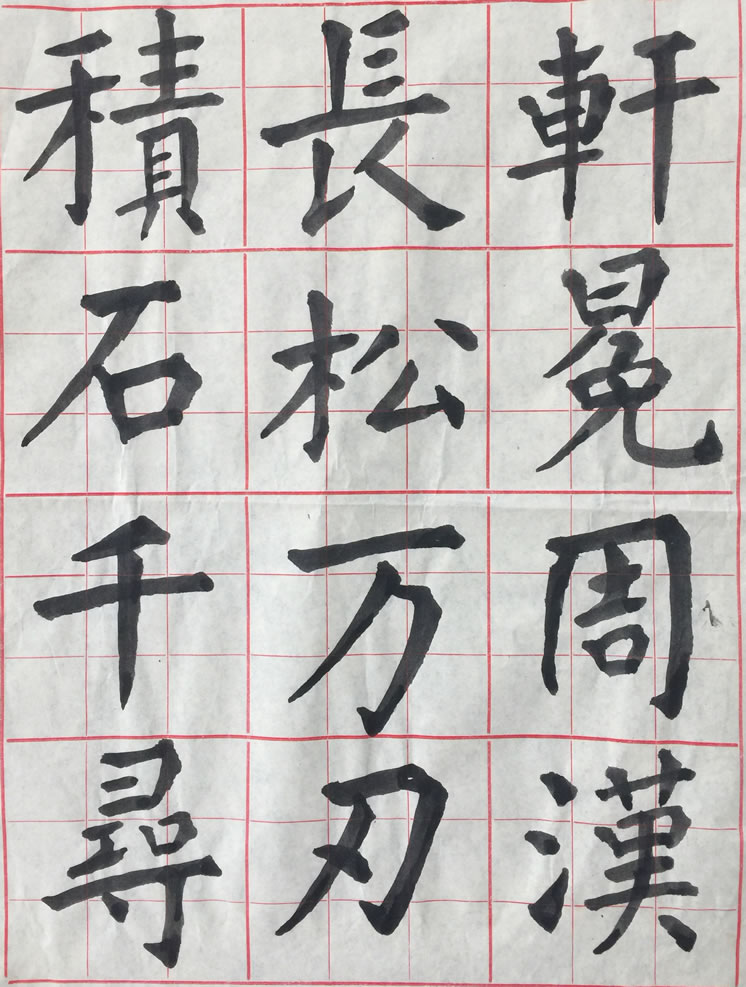 軒冕周漢
長松万刃
積石千尋